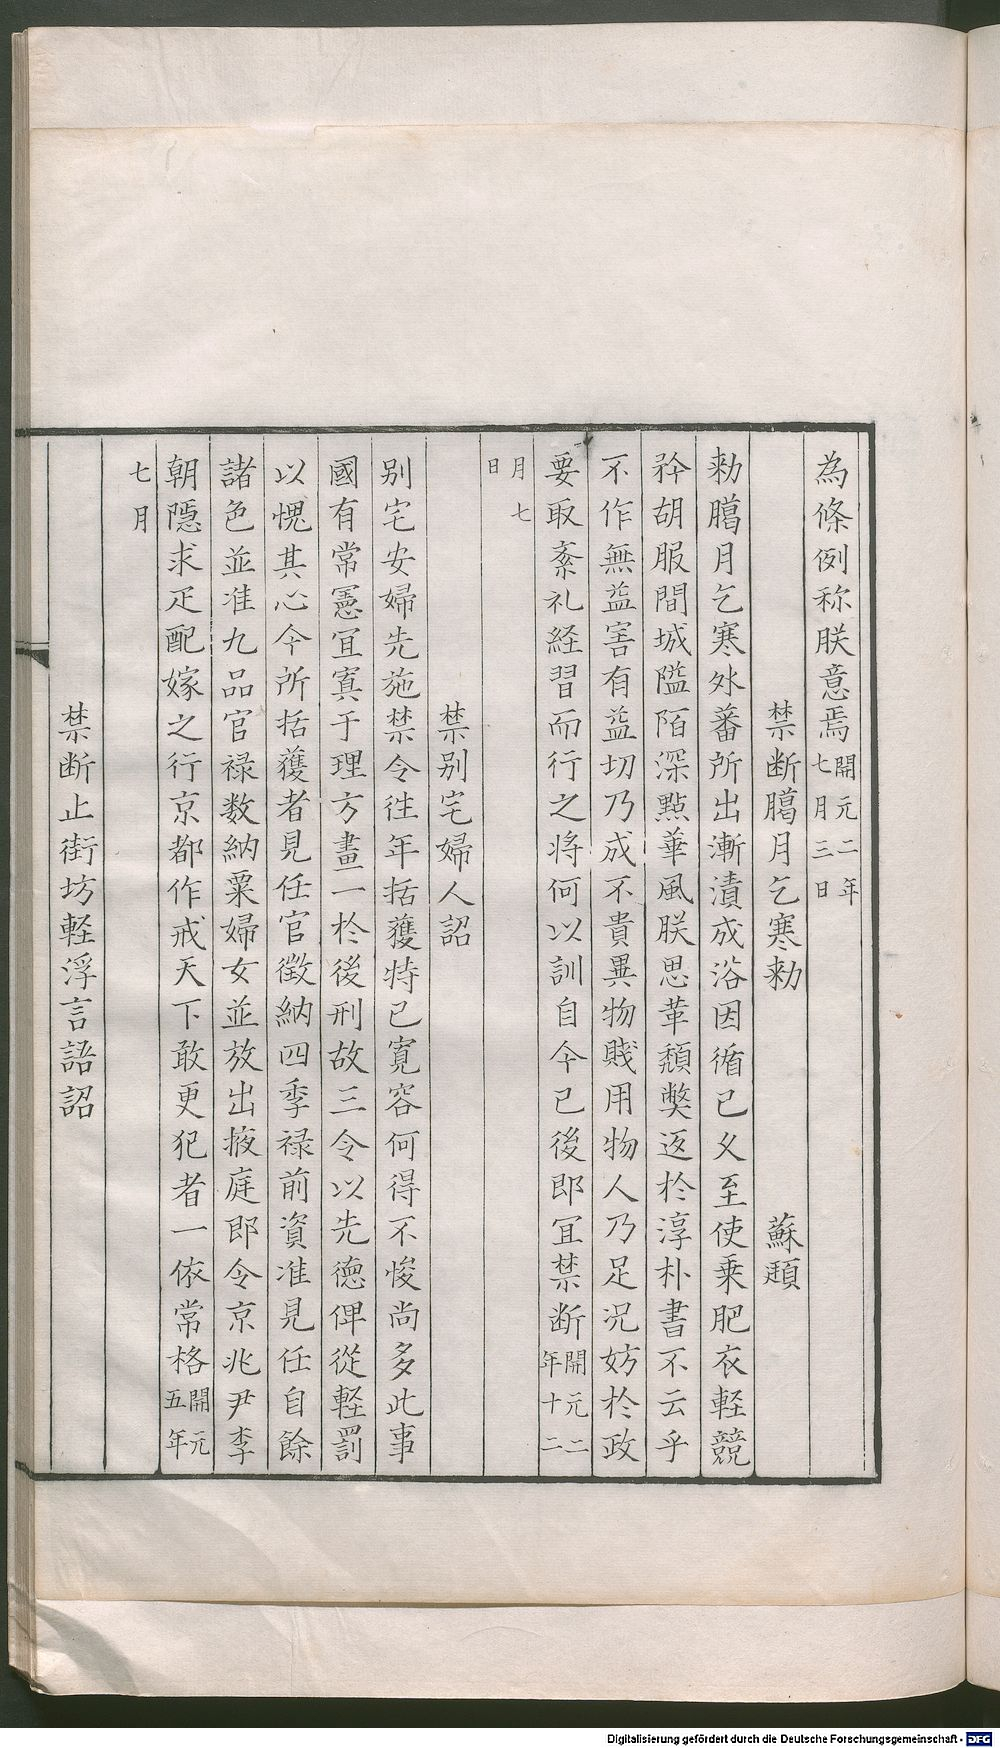 為條例称朕意焉開元二年七月三日
禁断臈月乞寒勅 蘇頲
勅臈月乞寒外蕃所出漸漬成浴因循已久至使乗肥衣軽競
矜胡服間城隘陌深點華風朕思革頹獘返於淳朴書不云乎
不作無益害有益切乃成不貴異物賎用物人乃足况妨於政
要取紊礼経習而行之将何以訓自今已後即宜禁断開元二年十二
月七日
禁别宅婦人詔
别宅安婦先施禁令徃年括獲特已寛容何得不悛尚多此事
國有常憲宜寘于理方畫一於後刑故三令以先德俾從軽罰
以愧其心今所括獲者見任官徴納四季禄前資准見任自餘
諸色並准九品官禄数納粟婦女並放出掖庭即令京兆尹李
朝隱求疋配嫁之行京都作戒天下敢更犯者一依常格開元五年
七月
禁断止街坊軽浮言語詔
Digitalisierung gefördert durch die Deutsche Forschungsgemeinschaft - DFG